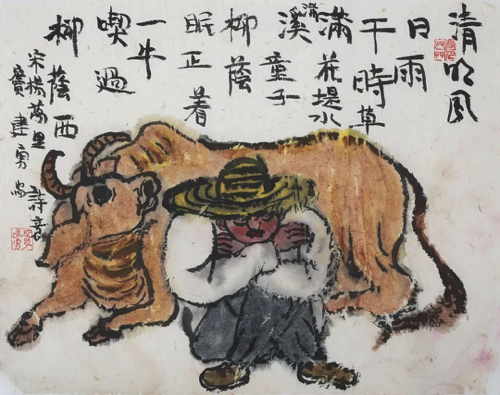 清明風
日雨
干時草
滿花堤水
滿溪童子
柳蔭
眠正着
一牛
喫過
柳蔭西
宋楊萬里詩意
建勇寫